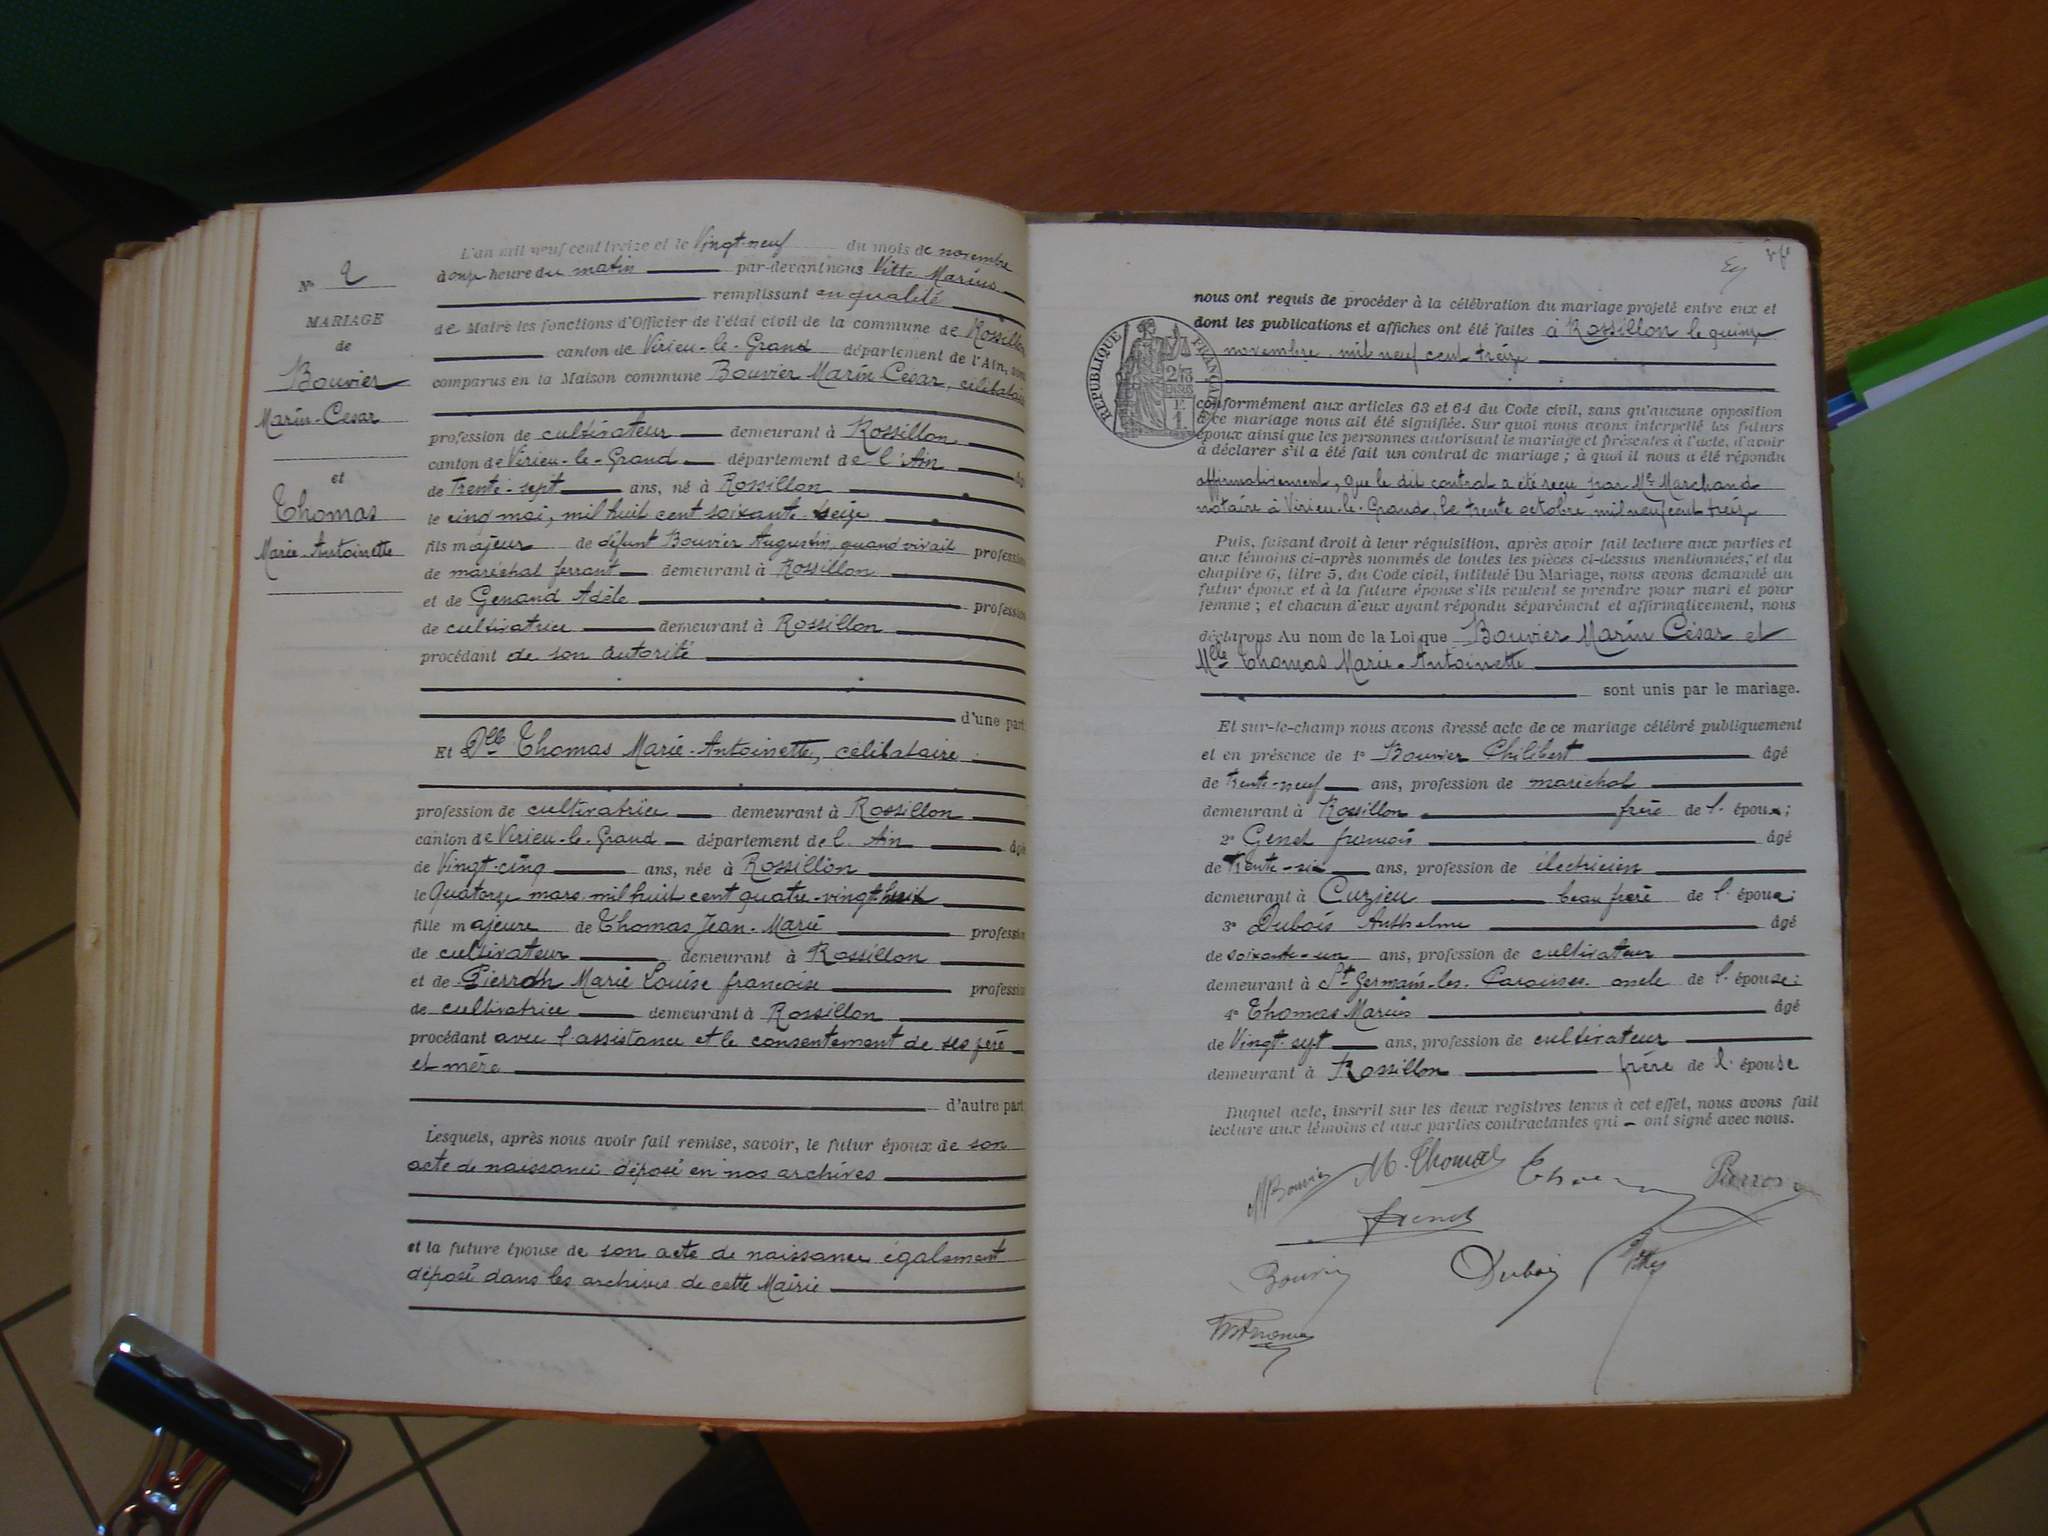 L'an mil neuf cent treize et le Vingt-neuf du mois de novembre
à onze heure du matin par-devant nous Vitte Marius
remplissant en qualité
de Maire les fonctions d'Officier de l'état civil de la commune de Rossillon
canton de Virieu-le-Grand département de l'Ain, sont
comparus en la Maison commune Bouvier Marin César, célibataire
profession de cultivateur demeurant à Rossillon
canton de Virieu-le-Grand département de l'Ain âgé
de Trente-sept ans, né à Rossillon
le cinq mai, mil huit cent soixante-seize
fils majeur de défunt Bouvier Augustin, quand vivait profession
de maréchal ferrant demeurant à Rossillon
et de Genand Adèle profession
de cultivatrice demeurant à Rossillon
procédant de son autorité
d'une part
Et Dlle Thomas Marie-Antoinette, célibataire
profession de cultivatrice demeurant à Rossillon
canton de Virieu-le-Grand département de l'Ain âgée
de Vingt-cinq ans, née à Rossillon
le Quatorze mars mil huit cent quatre-vingt-huit
fille majeure de Thomas Jean-Marie profession
de cultivateur demeurant à Rossillon
et de Pierroh Marie Louise françoise profession
de cultivatrice demeurant à Rossillon
procédant avec l'assistance et le consentement de ses père
et mère
d'autre part
Lesquels, après nous avoir fait remise, savoir, le futur époux de son
acte de naissance déposé en nos archives
et la future épouse de son acte de naissance également
déposé dans les archives de cette Mairie
N° 2
MARIAGE
de
Bouvier
Marin-César
et
Thomas
Marie-Antoinette
nous ont requis de procéder à la célébration du mariage projeté entre eux et
dont les publications et affiches ont été faites à Rossillon le quinze
novembre mil neuf cent treize
RÉPUBLIQUE FRANÇAISE
conformément aux articles 63 et 64 du Code civil, sans qu'aucune opposition
à ce mariage nous ait été signifiée. Sur quoi nous avons interpellé les futurs
époux ainsi que les personnes autorisant le mariage et présentes à l'acte, d'avoir
à déclarer s'il a été fait un contrat de mariage ; à quoi il nous a été répondu
affirmativement, que le dit contrat a été reçu par Me Marchand
notaire à Virieu-le-Grand, le trente octobre mil neuf cent treize
Puis, faisant droit à leur réquisition, après avoir fait lecture aux parties et
aux témoins ci-après nommés de toutes les pièces ci-dessus mentionnées, et du
chapitre 6, titre 5, du Code civil, intitulé Du Mariage, nous avons demandé au
futur époux et à la future épouse s'ils veulent se prendre pour mari et pour
femme ; et chacun d'eux ayant répondu séparément et affirmativement, nous
déclarons Au nom de la Loi que Bouvier Marin César et
Mlle Thomas Marie-Antoinette
sont unis par le mariage.
Et sur-le-champ nous avons dressé acte de ce mariage célébré publiquement
et en présence de 1° Bouvier Philibert âgé
de trente-neuf ans, profession de maréchal
demeurant à Rossillon frère de l'époux;
2° Genet françois âgé
de Trente-six ans, profession de électricien
demeurant à Cuzieu beau frère de l'époux;
3° Dubois Anthelme âgé
de soixante-un ans, profession de cultivateur
demeurant à St Germain-les-Paroisses oncle de l'épouse;
4° Thomas Marius âgé
de Vingt-sept ans, profession de cultivateur
demeurant à Rossillon frère de l'épouse
Duquel acte, inscrit sur les deux registres tenus à cet effet, nous avons fait
lecture aux témoins et aux parties contractantes qui ont signé avec nous.
M Bouvier M. Thomas
Genet
Bouvier Dubois Vitte